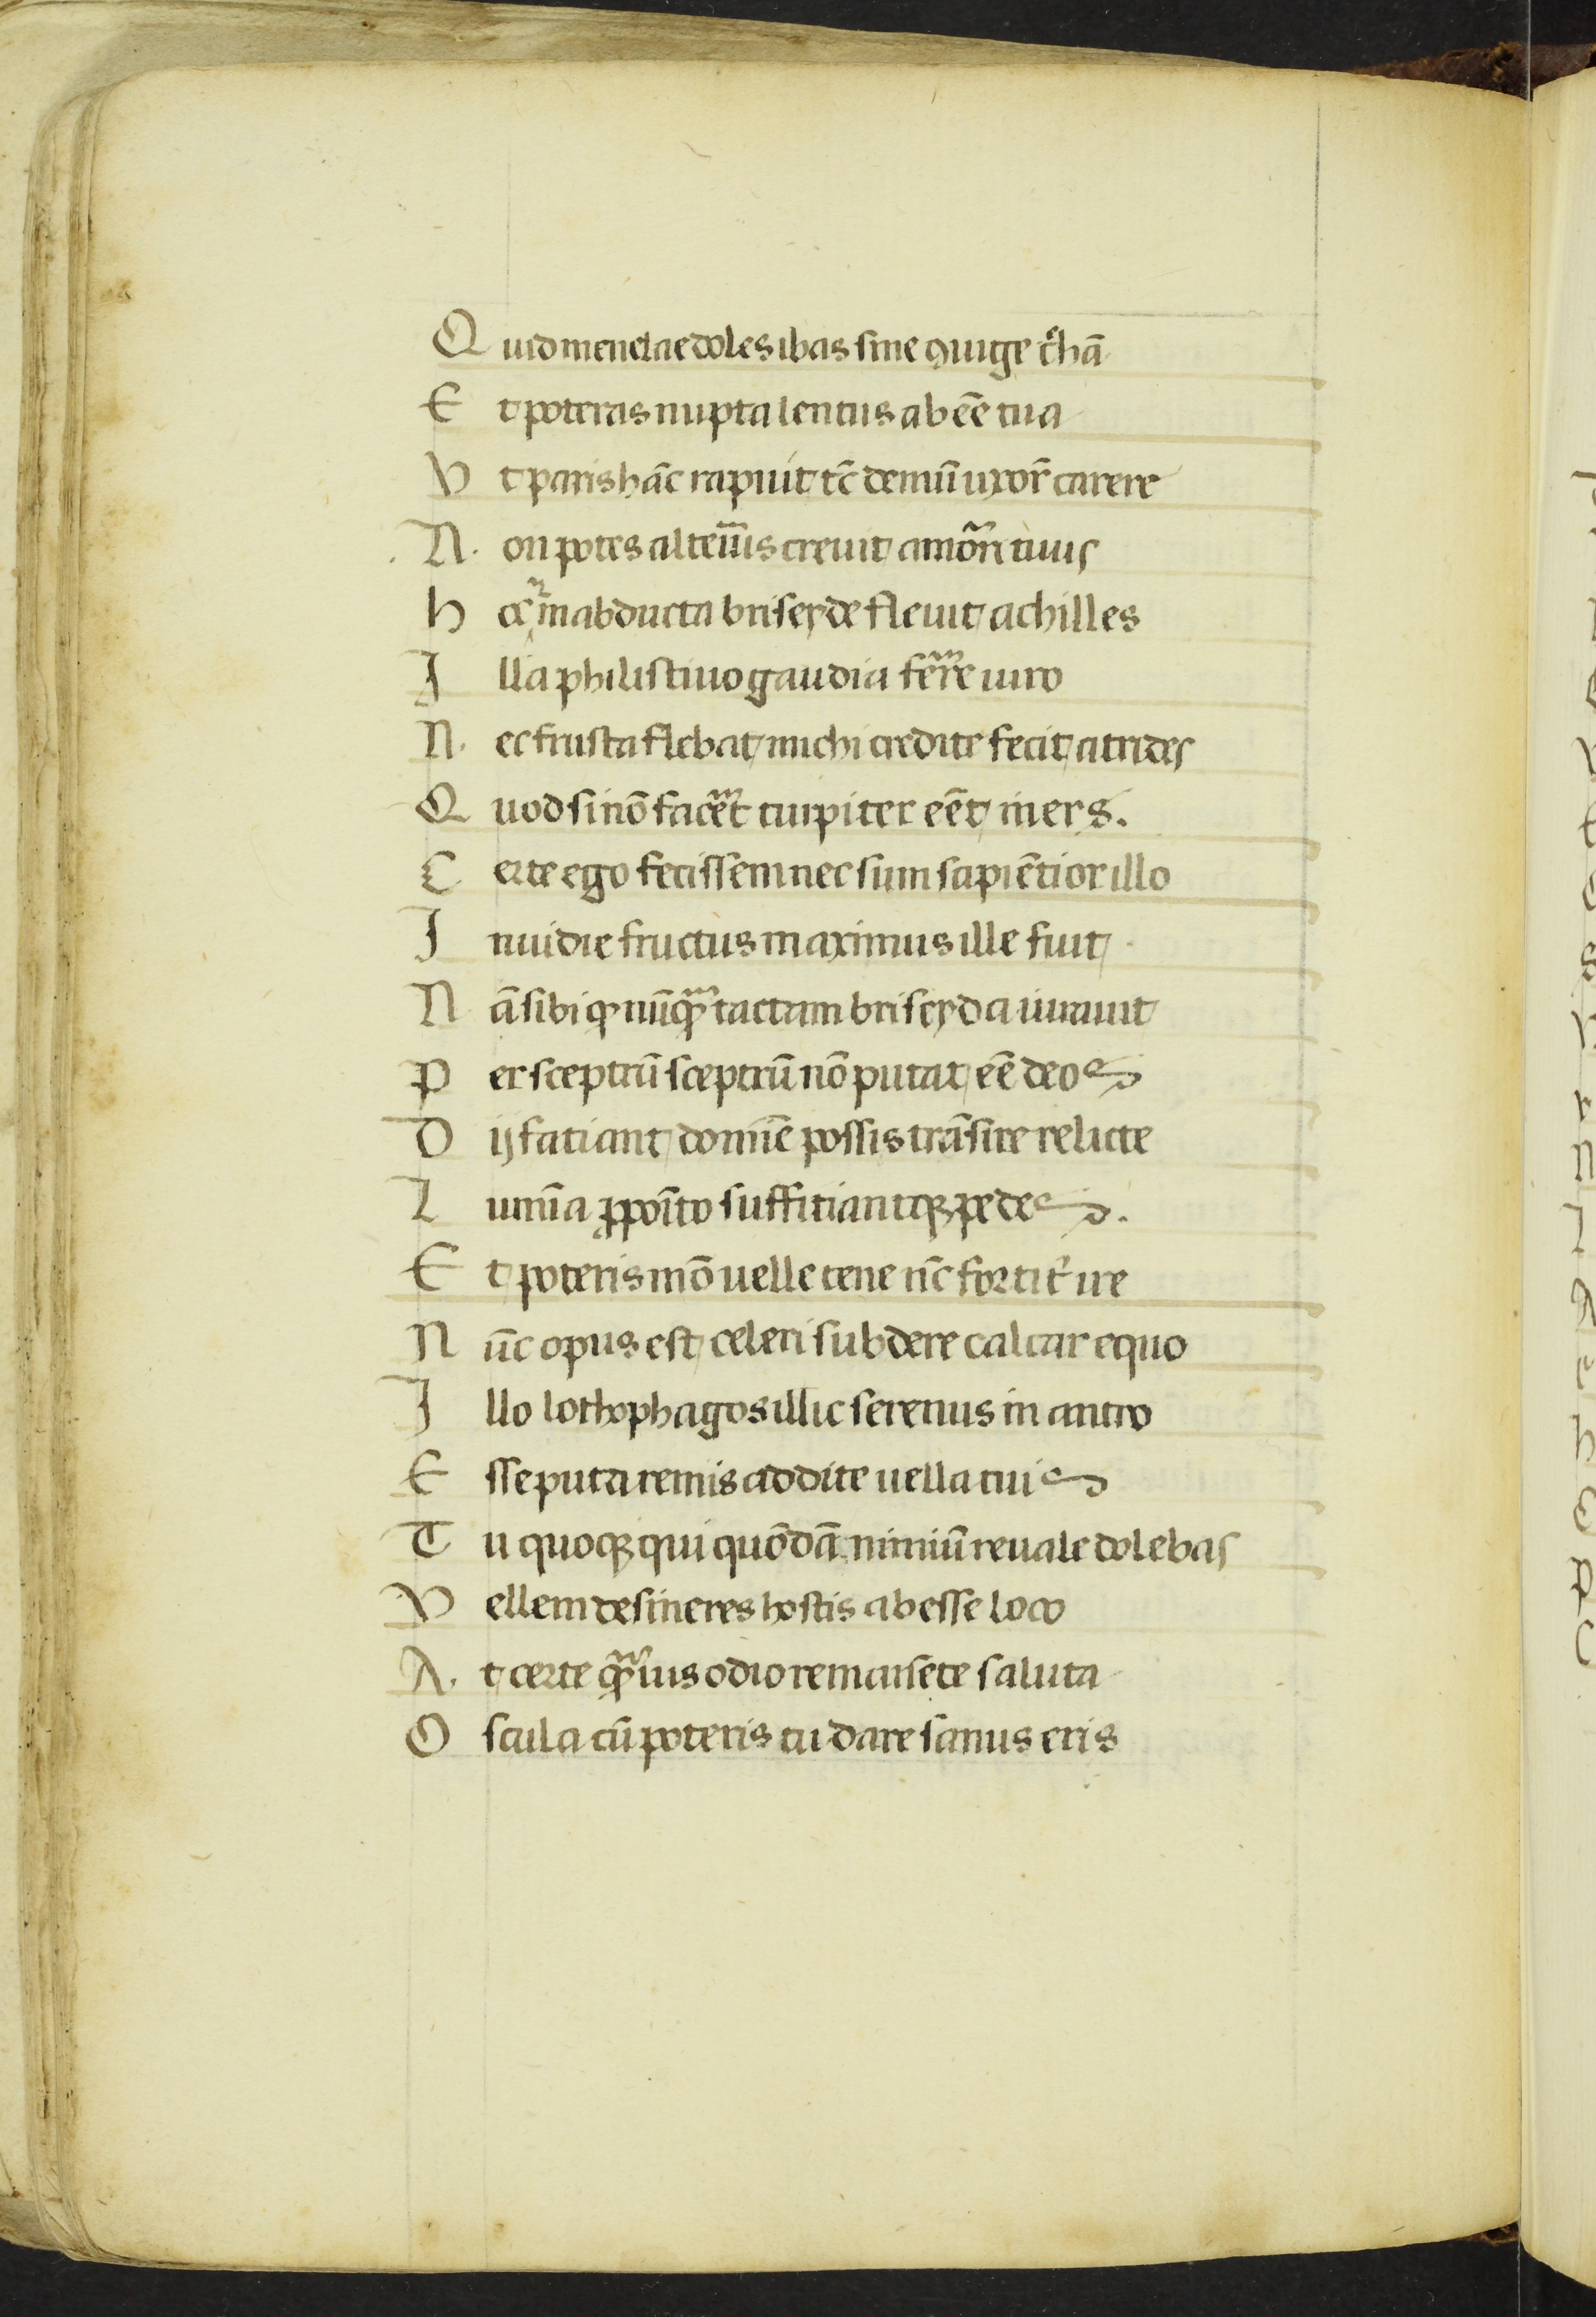 Quid menelae doles ibas sine ꝯiuge t͛hā
Et poteras nupta lentus ab eē̄ tua
Vt paris hāc rapuit tc̄ demū uxor̄ carere
Non potes alteiūs creuit amor̄ tuus
hoc̄ in abducta briseyde fleuit achilles
Illa philistiuo gaudia fer̄re uiro
Nec frusta flebat michi credite fecit atrides
Quod si nō facer̄et turpiter eēt iners.
Certe ego fecissem nec sum sapiētior illo
Inuidie fructus maximus ille fuit
Nā sibi ꝙ nūꝙ̄ tactam briseyda iurauit
Per sceptrū sceptrū nō putat eē deos
Dij fatiant domīe possis trāsire relicte
Limīa ꝓpoīto suffitiantqꝫ pedes.
Et poteris mō uelle tene nc̄ fortit͛ ire
Nūc opus est celeri subdere calcar equo
Illo lothophagos illic serenus in antro
Esse puta remis addite uella tuis
Tu quoqꝫ qui quōdā nimiū reuale dolebas
Vellem desineres hostis abesse loco
At certe ꝙ̄uis odio remansete saluta
Oscula cū poteris tu dare sanus eris